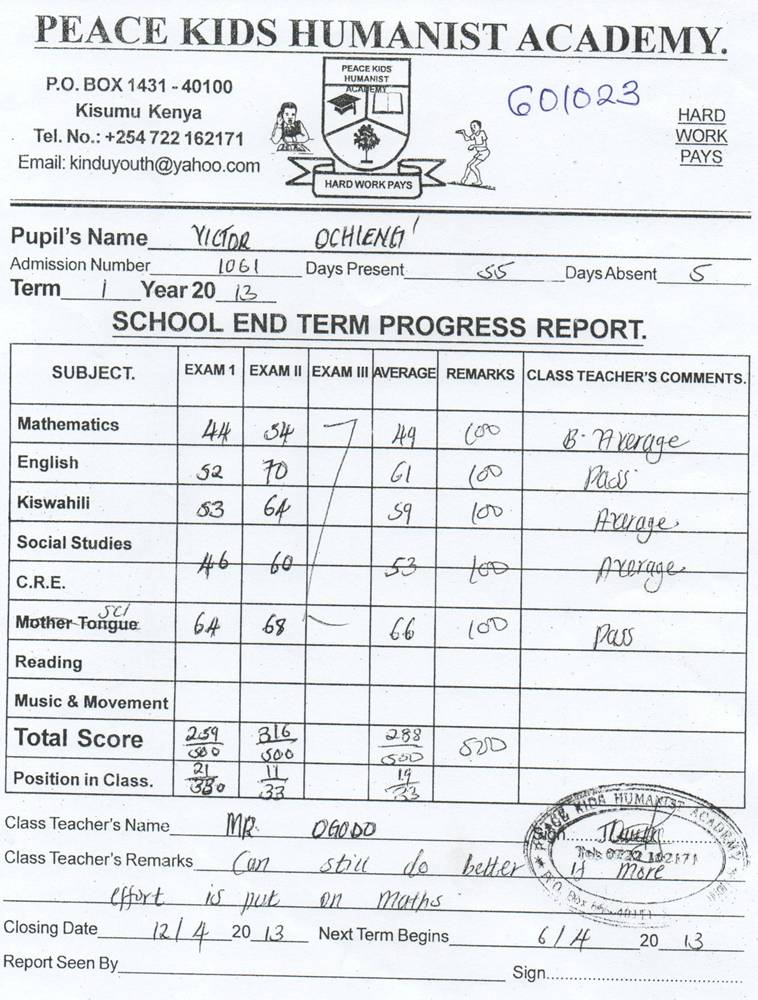 PEACE KIDS HUMANIST ACADEMY.
P.O. BOX 1431 - 40100
Kisumu Kenya
Tel. No.: +254 722 162171
Email: kinduyouth@yahoo.com
PEACE KIDS
HUMANIST
ACADEMY
HARD WORK PAYS
601023
HARD
WORK
PAYS
Pupil's Name VICTOR OCHIENG'
Admission Number 1061 Days Present 55 Days Absent 5
Term 1 Year 20 13
SCHOOL END TERM PROGRESS REPORT.
SUBJECT. EXAM 1 EXAM II EXAM III AVERAGE REMARKS CLASS TEACHER'S COMMENTS.
Mathematics 44 54 49 100 B. Average
English 52 70 61 100 Pass
Kiswahili 53 64 59 100 Average
Social Studies
C.R.E. 46 60 53 100 Average
Mother Tongue Sci 64 68 66 100 Pass
Reading
Music & Movement
Total Score 259/500 316/500 288/500 500
Position in Class. 21/33 11/33 19/33
Class Teacher's Name MR. OGODO Sign
Class Teacher's Remarks Can still do better if more
effort is put on maths
PEACE KIDS HUMANIST ACADEMY
Tel: 0722 162171
P.O. Box
Closing Date 12/4 20 13 Next Term Begins 6/4 20 13
Report Seen By Sign